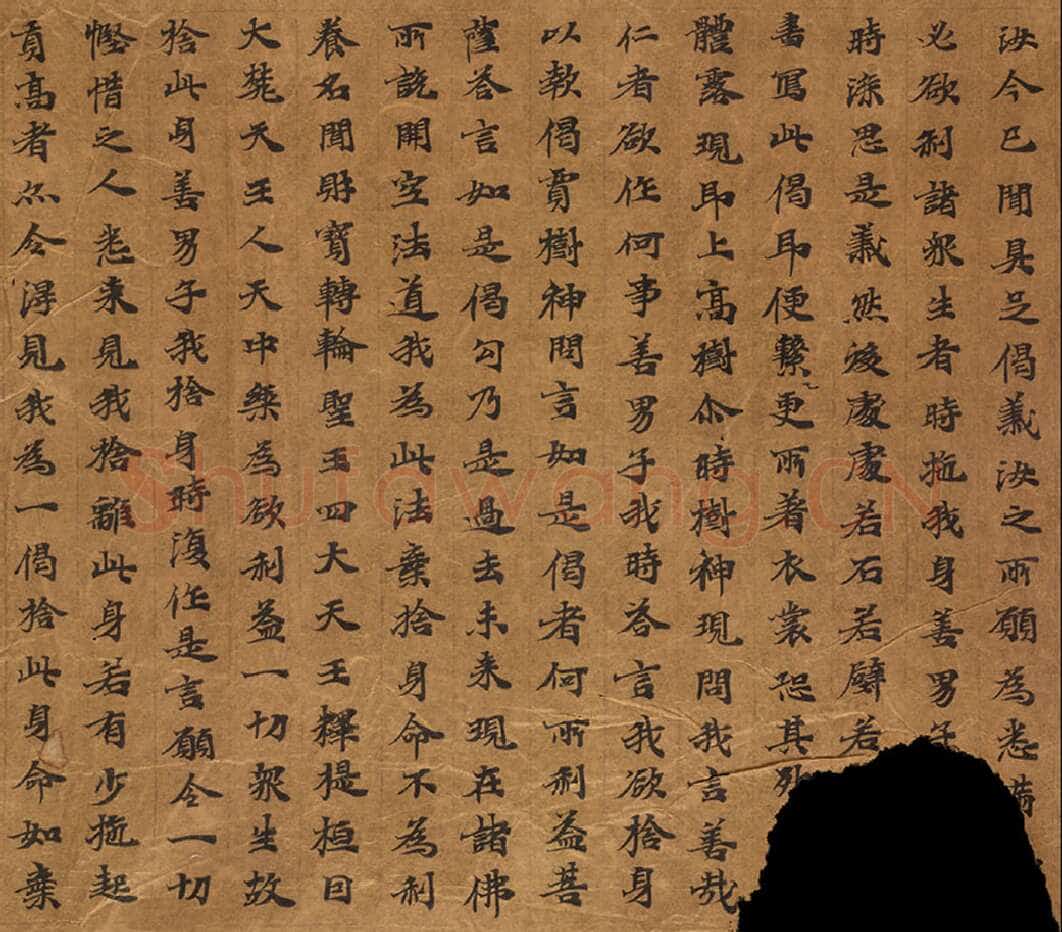 汝今已聞具足偈義汝之所願為悉滿
必欲利諸眾生者時施我身善男子
時深思是義然後處處若石若壁若
書寫此偈即便繫更所著衣裳恐其死
體露現即上高樹尒時樹神現問我言善哉
仁者欲作何事善男子我時答言我欲捨身
以報偈賈樹神問言如是偈者何所利益菩
薩答言如是偈句乃是過去未来現在諸佛
所說開空法道我為此法棄捨身命不為利
養名聞財寶轉輪聖王四大天王釋提桓因
大梵天王人天中樂為欲利益一切眾生故
捨此身善男子我捨身時復作是言願令一切
慳惜之人悉来見我捨離此身若有少施起
貢高者亦令得見我為一偈捨此身命如棄
Shufawang.CN